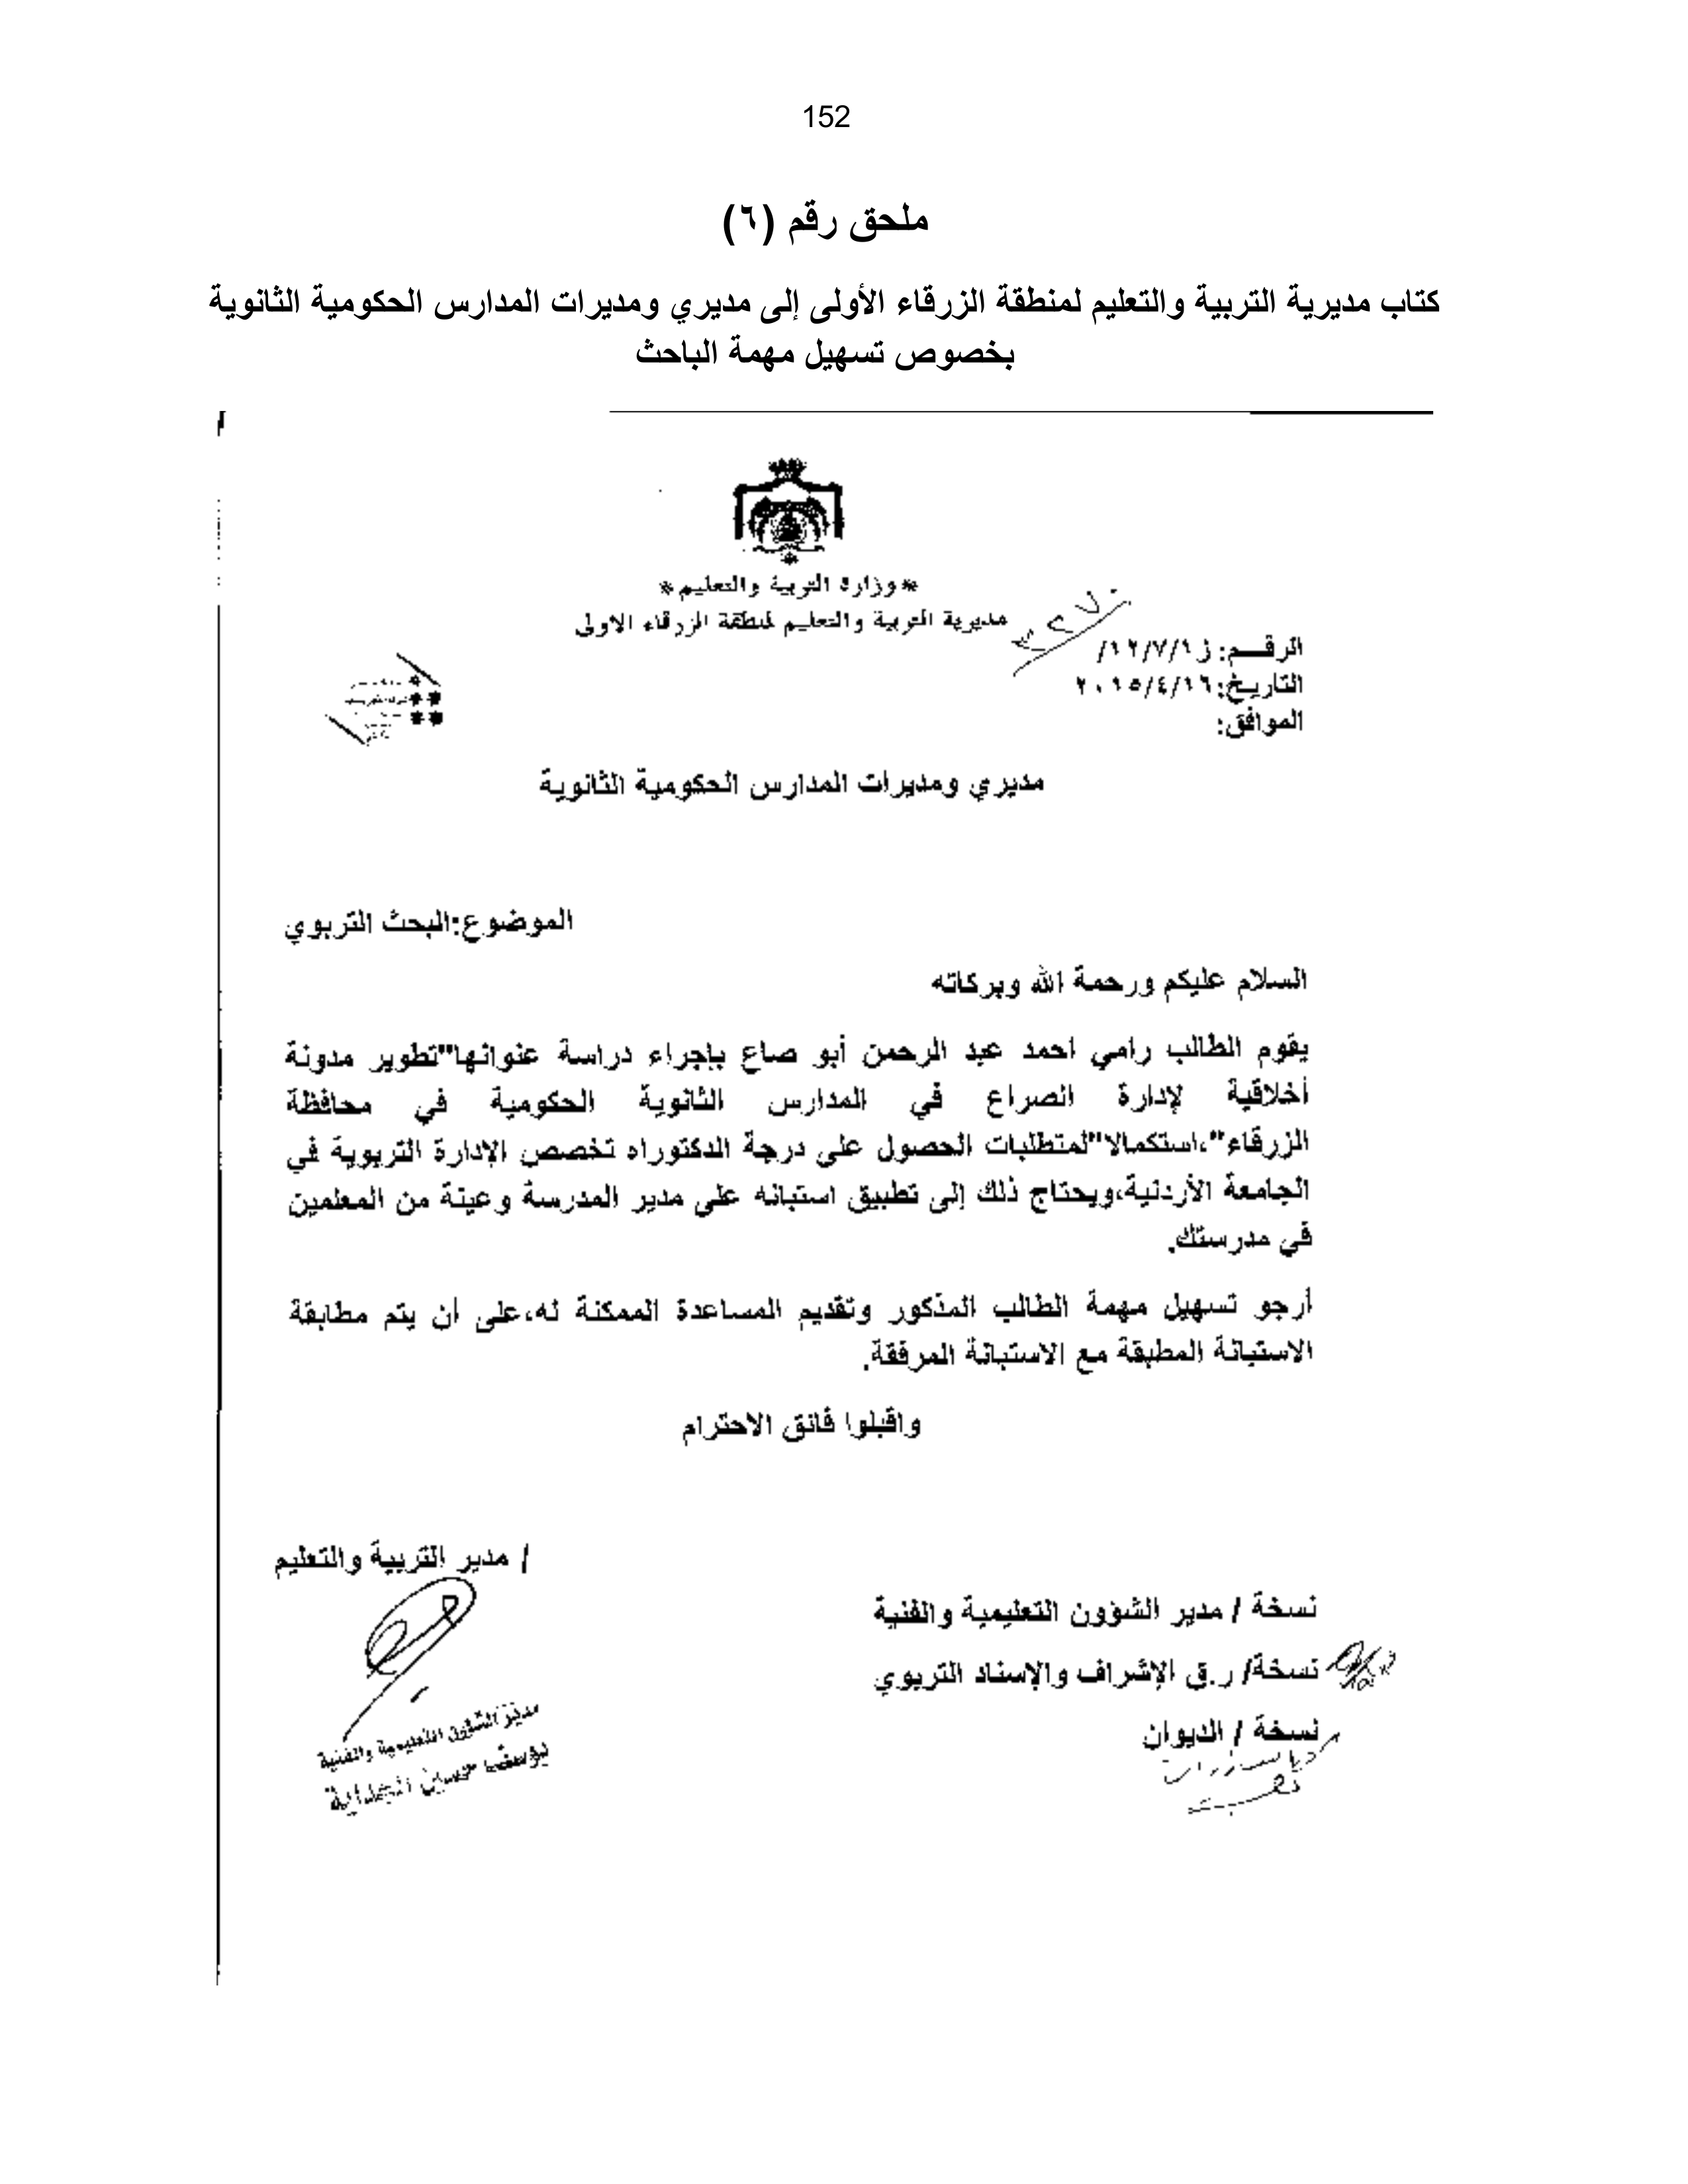 152
ملحق رقم (٦)
كتاب مديرية التربية والتعليم لمنطقة الزرقاء الأولى إلى مديري ومديرات المدارس الحكومية الثانوية
بخصوص تسهيل مهمة الباحث
*وزارة التربية والتعليم*
مديرية التربية والتعليم لمنطقة الزرقاء الاولى
الرقــم: ز/١٢/٧/١/
التاريـخ: ٢٠١٥/٤/١٦
الموافق:
مديري ومديرات المدارس الحكومية الثانوية
الموضوع:البحث التربوي
السلام عليكم ورحمة الله وبركاته
يقوم الطالب رامي احمد عبد الرحمن أبو صاع بإجراء دراسة عنوانها"تطوير مدونة
أخلاقية لإدارة الصراع في المدارس الثانوية الحكومية في محافظة
الزرقاء"،استكمالا"لمتطلبات الحصول على درجة الدكتوراه تخصص الإدارة التربوية في
الجامعة الأردنية،ويحتاج ذلك إلى تطبيق استبانه على مدير المدرسة وعينة من المعلمين
في مدرستك.
أرجو تسهيل مهمة الطالب المذكور وتقديم المساعدة الممكنة له،على أن يتم مطابقة
الاستبانة المطبقة مع الاستبانة المرفقة.
واقبلوا فائق الاحترام
/ مدير التربية والتعليم
نسخة / مدير الشؤون التعليمية والفنية
نسخة/ ر.ق الإشراف والإسناد التربوي
نسخة / الديوان
مدير الشؤون التعليمية والفنية
يوسف حسين